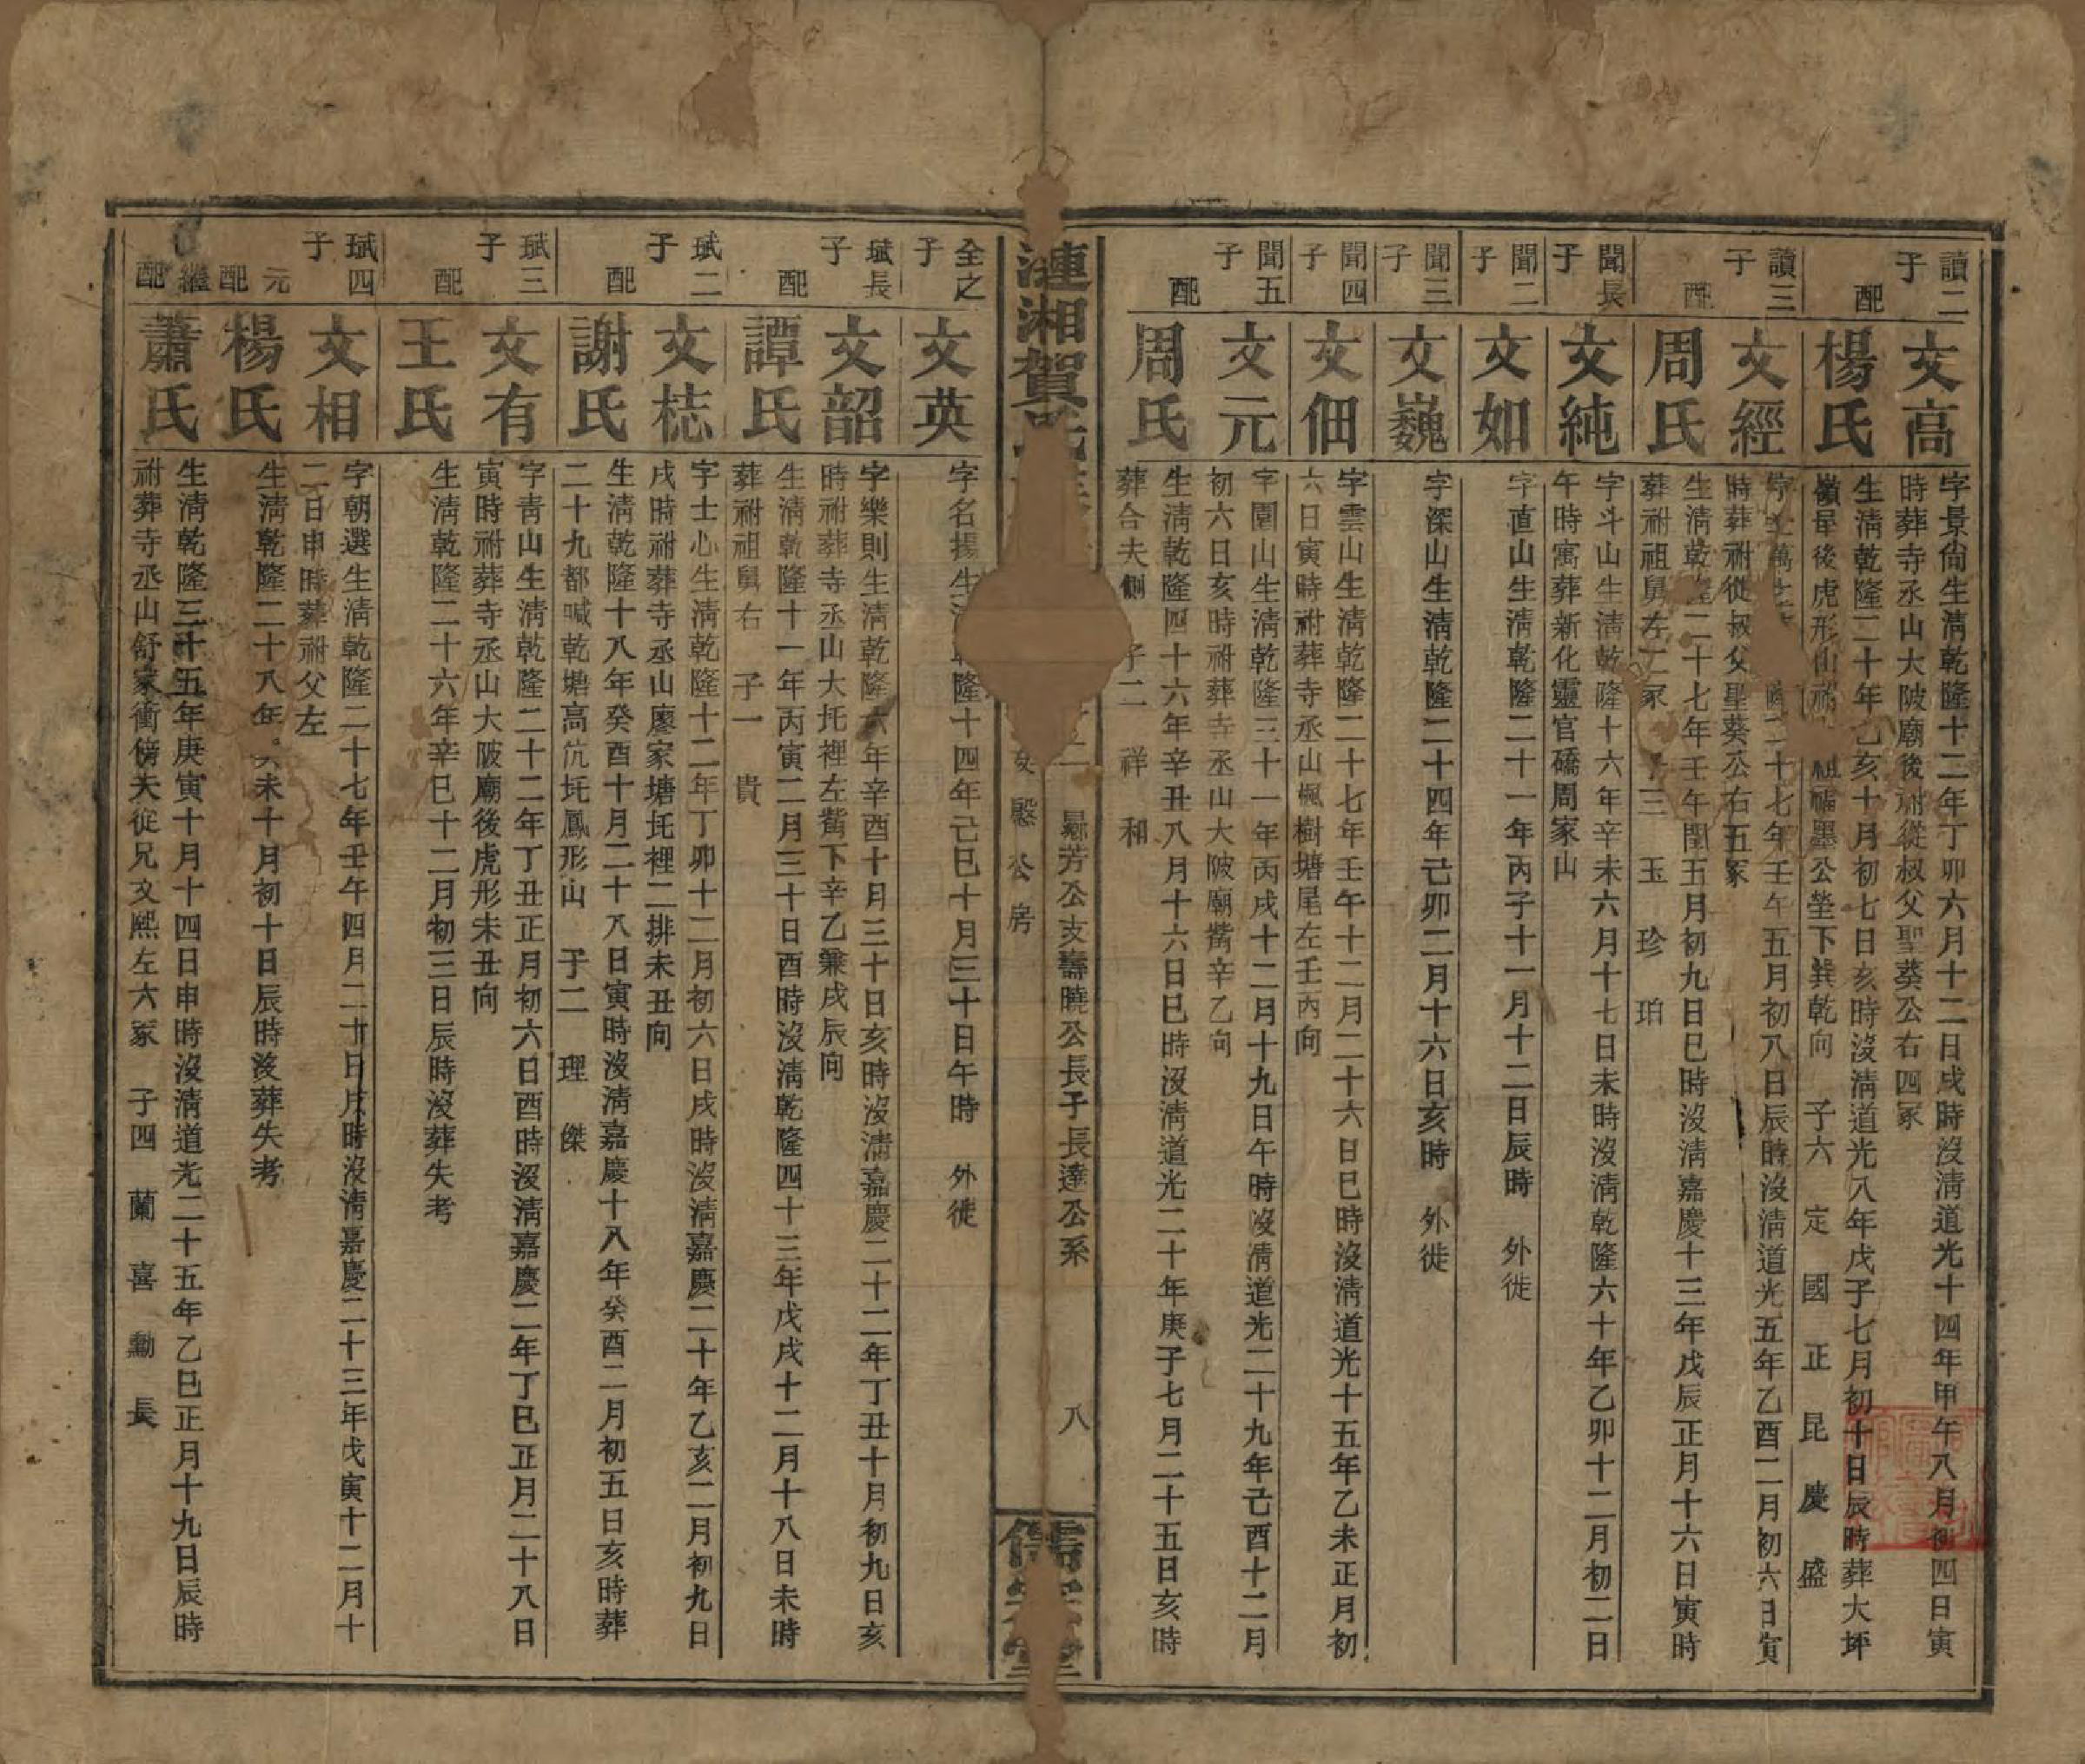 讀二子
文高
字景尙生淸乾隆十二年丁卯六月十二日戌時沒淸道光十四年甲午八月初四日寅
時葬寺丞山大陂廟後祔從叔父聖葵公右四冢
配
楊氏
生淸乾隆二十年乙亥十月初七日亥時沒淸道光八年戊子七月初十日辰時葬大坪
嶺屋後虎形山祔祖瞞墨公塋下巽乾向 子六 定 國 正 昆 慶 盛
讀三子
文經
字萬隆二十七年壬午五月初八日辰時沒淸道光五年乙酉二月初六日寅
時葬祔從叔父聖葵公右五冢
配
周氏
生淸乾隆二十七年壬午閏五月初九日巳時沒淸嘉慶十三年戊辰正月十六日寅時
葬祔祖舅左二冢 子三 玉 珍 珀
聞長子
文純
字斗山生淸乾隆十六年辛未六月十七日未時沒淸乾隆六十年乙卯十二月初二日
午時寓葬新化靈官礄周家山
聞二子
文如
字直山生淸乾隆二十一年丙子十一月十二日辰時 外徙
聞三子
文巍
字深山生淸乾隆二十四年己卯二月十六日亥時 外徙
聞四子
文佃
字雲山生淸乾隆二十七年壬午十二月二十六日巳時沒淸道光十五年乙未正月初
六日寅時祔葬寺丞山楓樹塘尾左壬丙向
聞五子
文元
字園山生淸乾隆三十一年丙戌十二月十九日午時沒淸道光二十九年己酉十二月
初六日亥時祔葬寺丞山大陂廟觜辛乙向
配
周氏
生淸乾隆四十六年辛丑八月十六日巳時沒淸道光二十年庚子七月二十五日亥時
葬合夫側 子二 祥 和
漣湘賀氏
鄡芳公支壽曉公長子長達公系
文慇公房
八
儒宗堂
全之子
文英
字名揚生淸乾隆十四年己巳十月三十日午時 外徙
珷長子
文韶
字樂則生淸乾隆六年辛酉十月三十日亥時沒淸嘉慶二十二年丁丑十月初九日亥
時祔葬寺丞山大圫裡左觜下辛乙兼戌辰向
配
譚氏
生淸乾隆十一年丙寅二月三十日酉時沒淸乾隆四十三年戊戌十二月十八日未時
葬祔祖舅右 子一 貴
珷二子
文梽
字士心生淸乾隆十二年丁卯十二月初六日戌時沒淸嘉慶二十年乙亥二月初九日
戌時祔葬寺丞山廖家塘圫裡二排未丑向
配
謝氏
生淸乾隆十八年癸酉十月二十八日寅時沒淸嘉慶十八年癸酉二月初五日亥時葬
二十九都喊乾塘高坑圫鳳形山 子二 理 傑
珷三子
文有
字靑山生淸乾隆二十二年丁丑正月初六日酉時沒淸嘉慶二年丁巳正月二十八日
寅時祔葬寺丞山大陂廟後虎形未丑向
配
王氏
生淸乾隆二十六年辛巳十二月初三日辰時沒葬失考
珷四子
文相
字朝選生淸乾隆二十七年壬午四月二十日戌時沒淸嘉慶二十三年戊寅十二月十
二日申時葬祔父左
元配
楊氏
生淸乾隆二十八年癸未十月初十日辰時沒葬失考
繼配
蕭氏
生淸乾隆三十五年庚寅十月十四日申時沒淸道光二十五年乙巳正月十九日辰時
祔葬寺丞山舒家衝傍夫從兄文熙左六冢 子四 蘭 喜 勳 長